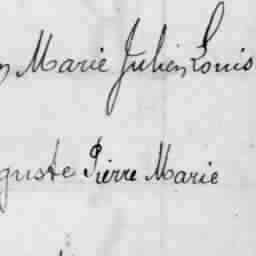 Marie Julien Louis
guste Pierre Marie